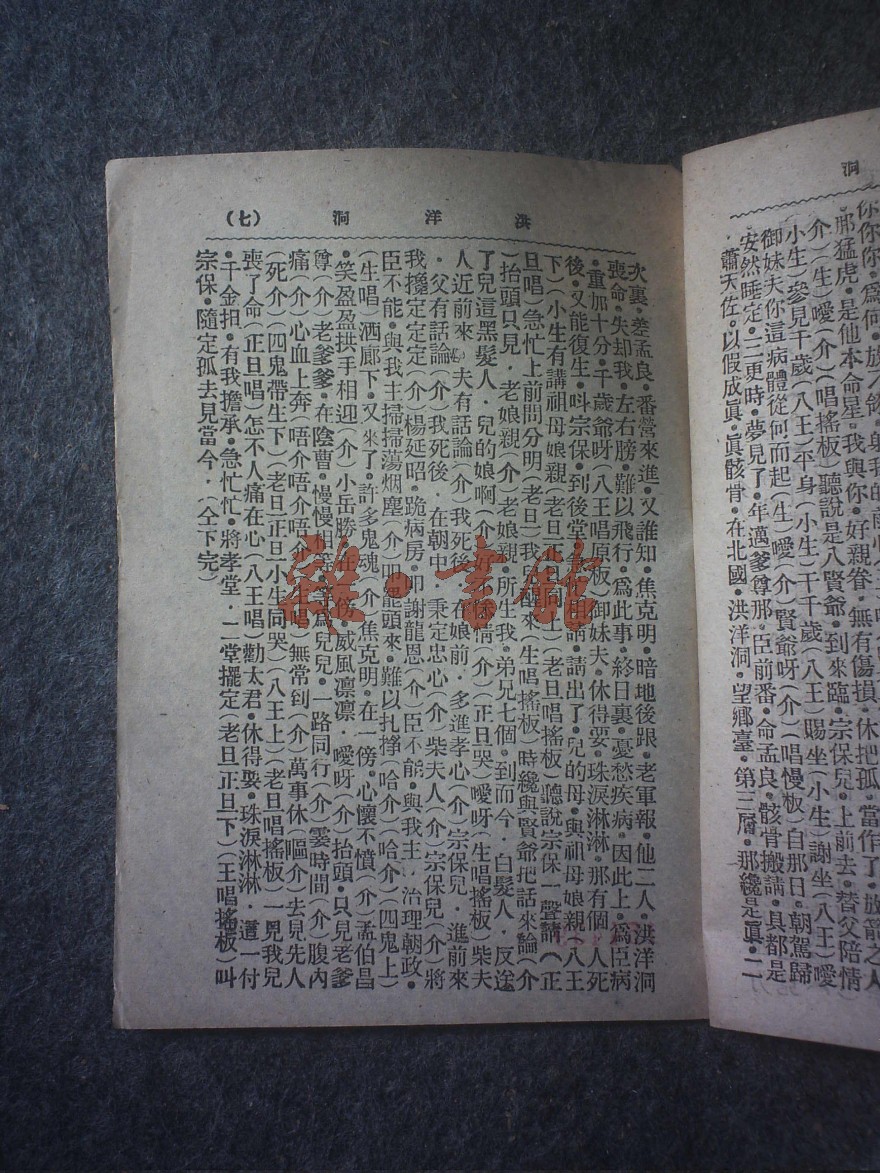 洞
那猛虎·是他本命星·我與你·好親眷·無有傷損·休把孤·當作了·放箭之人
介)(生)噯(介)(唱搖板)聽說是八賢爺·到來臨·宗保兒·上前去·替父陪情
小生)參見千歲(八王)平身(小生)千千歲(八王)賜坐(小生)謝坐(八王)噯
御妹夫你這病體從何而起(生)噯(介)賢爺呀(介)(唱慢板)自那日·朝駕歸
安然睡定·二更時·夢見了·年邁爹尊那·臣前番·命孟良·骸骨搬請·具都是
蕭天佐·以假成眞·眞骸骨·在北國·洪洋洞·望鄉臺·第三層·那纔是眞·二
洪洋洞 (七)
次裏·差孟良·番營來進·又誰知·焦克明·暗地後跟·老軍報·他二人·洪洋洞
喪命·失却我·左右膀·難以飛行·爲此事·終日裏·憂愁疾病·因此上·爲臣病
·重加十分·千歲爺呀(八王唱原板)御妹夫·休得要·珠淚淋淋·那有個·人死
後·又能復生·叫宗保·到後堂·請·請出了·兒的母·與祖母娘親(八王
下)(小生有講祖母娘親(老旦正上)(老旦唱搖板)聽說宗保一聲請(正
旦唱)急忙上前問分明(老旦)我兒醒來(生唱搖板)時纔與賢爺把話來論(介
)抬頭只見·老娘親(介)老娘親·所生我·弟兄七個·到而今·白髮人·反送
了兒這黑髮人·兒的娘啊(介)好情(介)(正旦哭)噯呀(生唱搖板)柴夫
人近前來·夫有話論(介)我死後·在娘前·多進孝心(介)宗保兒·進前來
·父有話論(介)我死後·在朝中·秉定忠心(介)柴夫人(介)宗保兒(介)將
我攙定定定(介)楊延昭·跪病房·叩謝龍恩(介)臣不能·與我主·治理朝政·
臣不能·與我主掃掃蕩烟塵(介)叩龍頭來·難以扎掙(哈介)(哈介)(四鬼上)
(生唱)洒廊下·又來了·許多鬼魂(介)焦克明·在一傍·心懷不憤(介)孟伯昌
·笑盈盈拱手相迎(介)小岳勝在傍威風凛凛·噯呀(介)抬頭·只見老爹
尊(介)老爹爹·在陰曹·慢慢相等·等爲兒兒·一路同行(介)霎時間(介)腹內
痛(介)心血上奔·唔介唔介唔介(唱)無常到(介)萬事休(嘔介)去見先人
(死介)(四鬼帶生下)(老旦正旦小生同哭)(八王上)(老旦唱搖板)一見我兒
喪了命(正旦唱)怎不人痛在心(八王唱)勸太君·休得要·珠淚淋淋·這一付
·千金担·有我擔承·急忙忙·將孝堂·一堂擺定(老旦正旦下)(王唱搖板)叫
宗保·隨定孤去見當今·(仝下完)
雜·書館